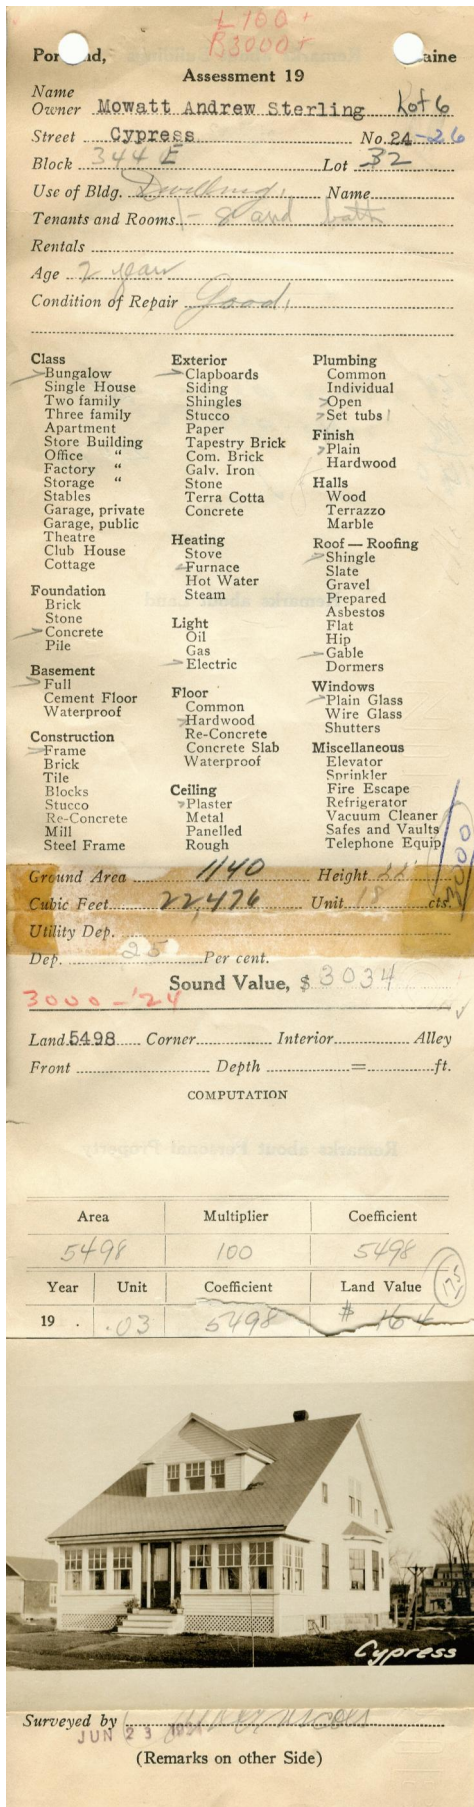 L 100+
B 3000+
Por nd, aine
Assessment 19
Name
Owner Mowatt Andrew Sterling Lot 6
Street Cypress No. 24-26
Block 344 E Lot 32
Use of Bldg. Dwelling. Name
Tenants and Rooms 1- 8 and bath
Rentals
Age 2 years
Condition of Repair Good.
Class
Bungalow
Single House
Two family
Three family
Apartment
Store Building
Office "
Factory "
Storage "
Stables
Garage, private
Garage, public
Theatre
Club House
Cottage
Foundation
Brick
Stone
Concrete
Pile
Basement
Full
Cement Floor
Waterproof
Construction
Frame
Brick
Tile
Blocks
Stucco
Re-Concrete
Mill
Steel Frame
Exterior
Clapboards
Siding
Shingles
Stucco
Paper
Tapestry Brick
Com. Brick
Galv. Iron
Stone
Terra Cotta
Concrete
Heating
Stove
Furnace
Hot Water
Steam
Light
Oil
Gas
Electric
Floor
Common
Hardwood
Re-Concrete
Concrete Slab
Waterproof
Ceiling
Plaster
Metal
Panelled
Rough
Plumbing
Common
Individual
Open
Set tubs 1
Finish
Plain
Hardwood
Halls
Wood
Terrazzo
Marble
Roof — Roofing
Shingle
Slate
Gravel
Prepared
Asbestos
Flat
Hip
Gable
Dormers
Windows
Plain Glass
Wire Glass
Shutters
Miscellaneous
Elevator
Sprinkler
Fire Escape
Refrigerator
Vacuum Cleaner
Safes and Vaults
Telephone Equip
3000
Ground Area 1140 Height 22'
Cubic Feet 22,476 Unit 18 cts.
Utility Dep.
Dep. 25 Per cent.
Sound Value, $ 3034
3000-'24
Land 5498 Corner Interior Alley
Front Depth = ft.
COMPUTATION
Area Multiplier Coefficient
5498 100 5498
Year Unit Coefficient Land Value 175
19 . .03 5498 $ 164
Cypress
Surveyed by
JUN 23
(Remarks on other Side)